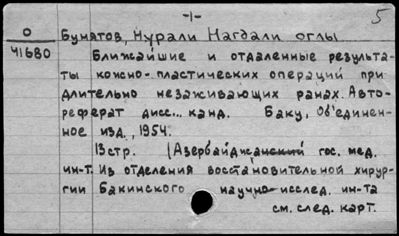 -1-
5
0 Бунятов, Нурали Нагдали оглы
41680 Ближайшие и отдаленные результа-
ты кожно-пластических операций при
длительно незаживающих ранах. Авто-
реферат дисс... канд. Баку, Объединен-
ное изд., 1954.
13стр. (Азербайджанский гос. мед.
ин-т. Из отделения восстановительной хирур-
гии Бакинского научно-исслед. ин-та
см. след. карт.